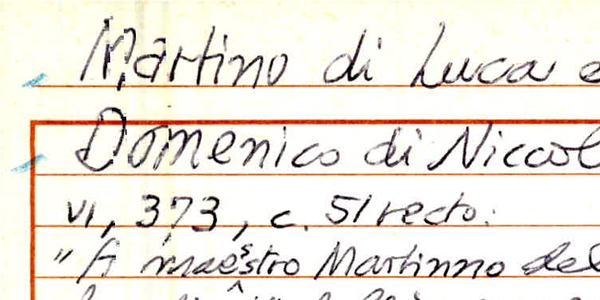 Martino di Luca e
Domenico di Niccol
VI, 373, c. 51 recto:
"A maestro Martinno del